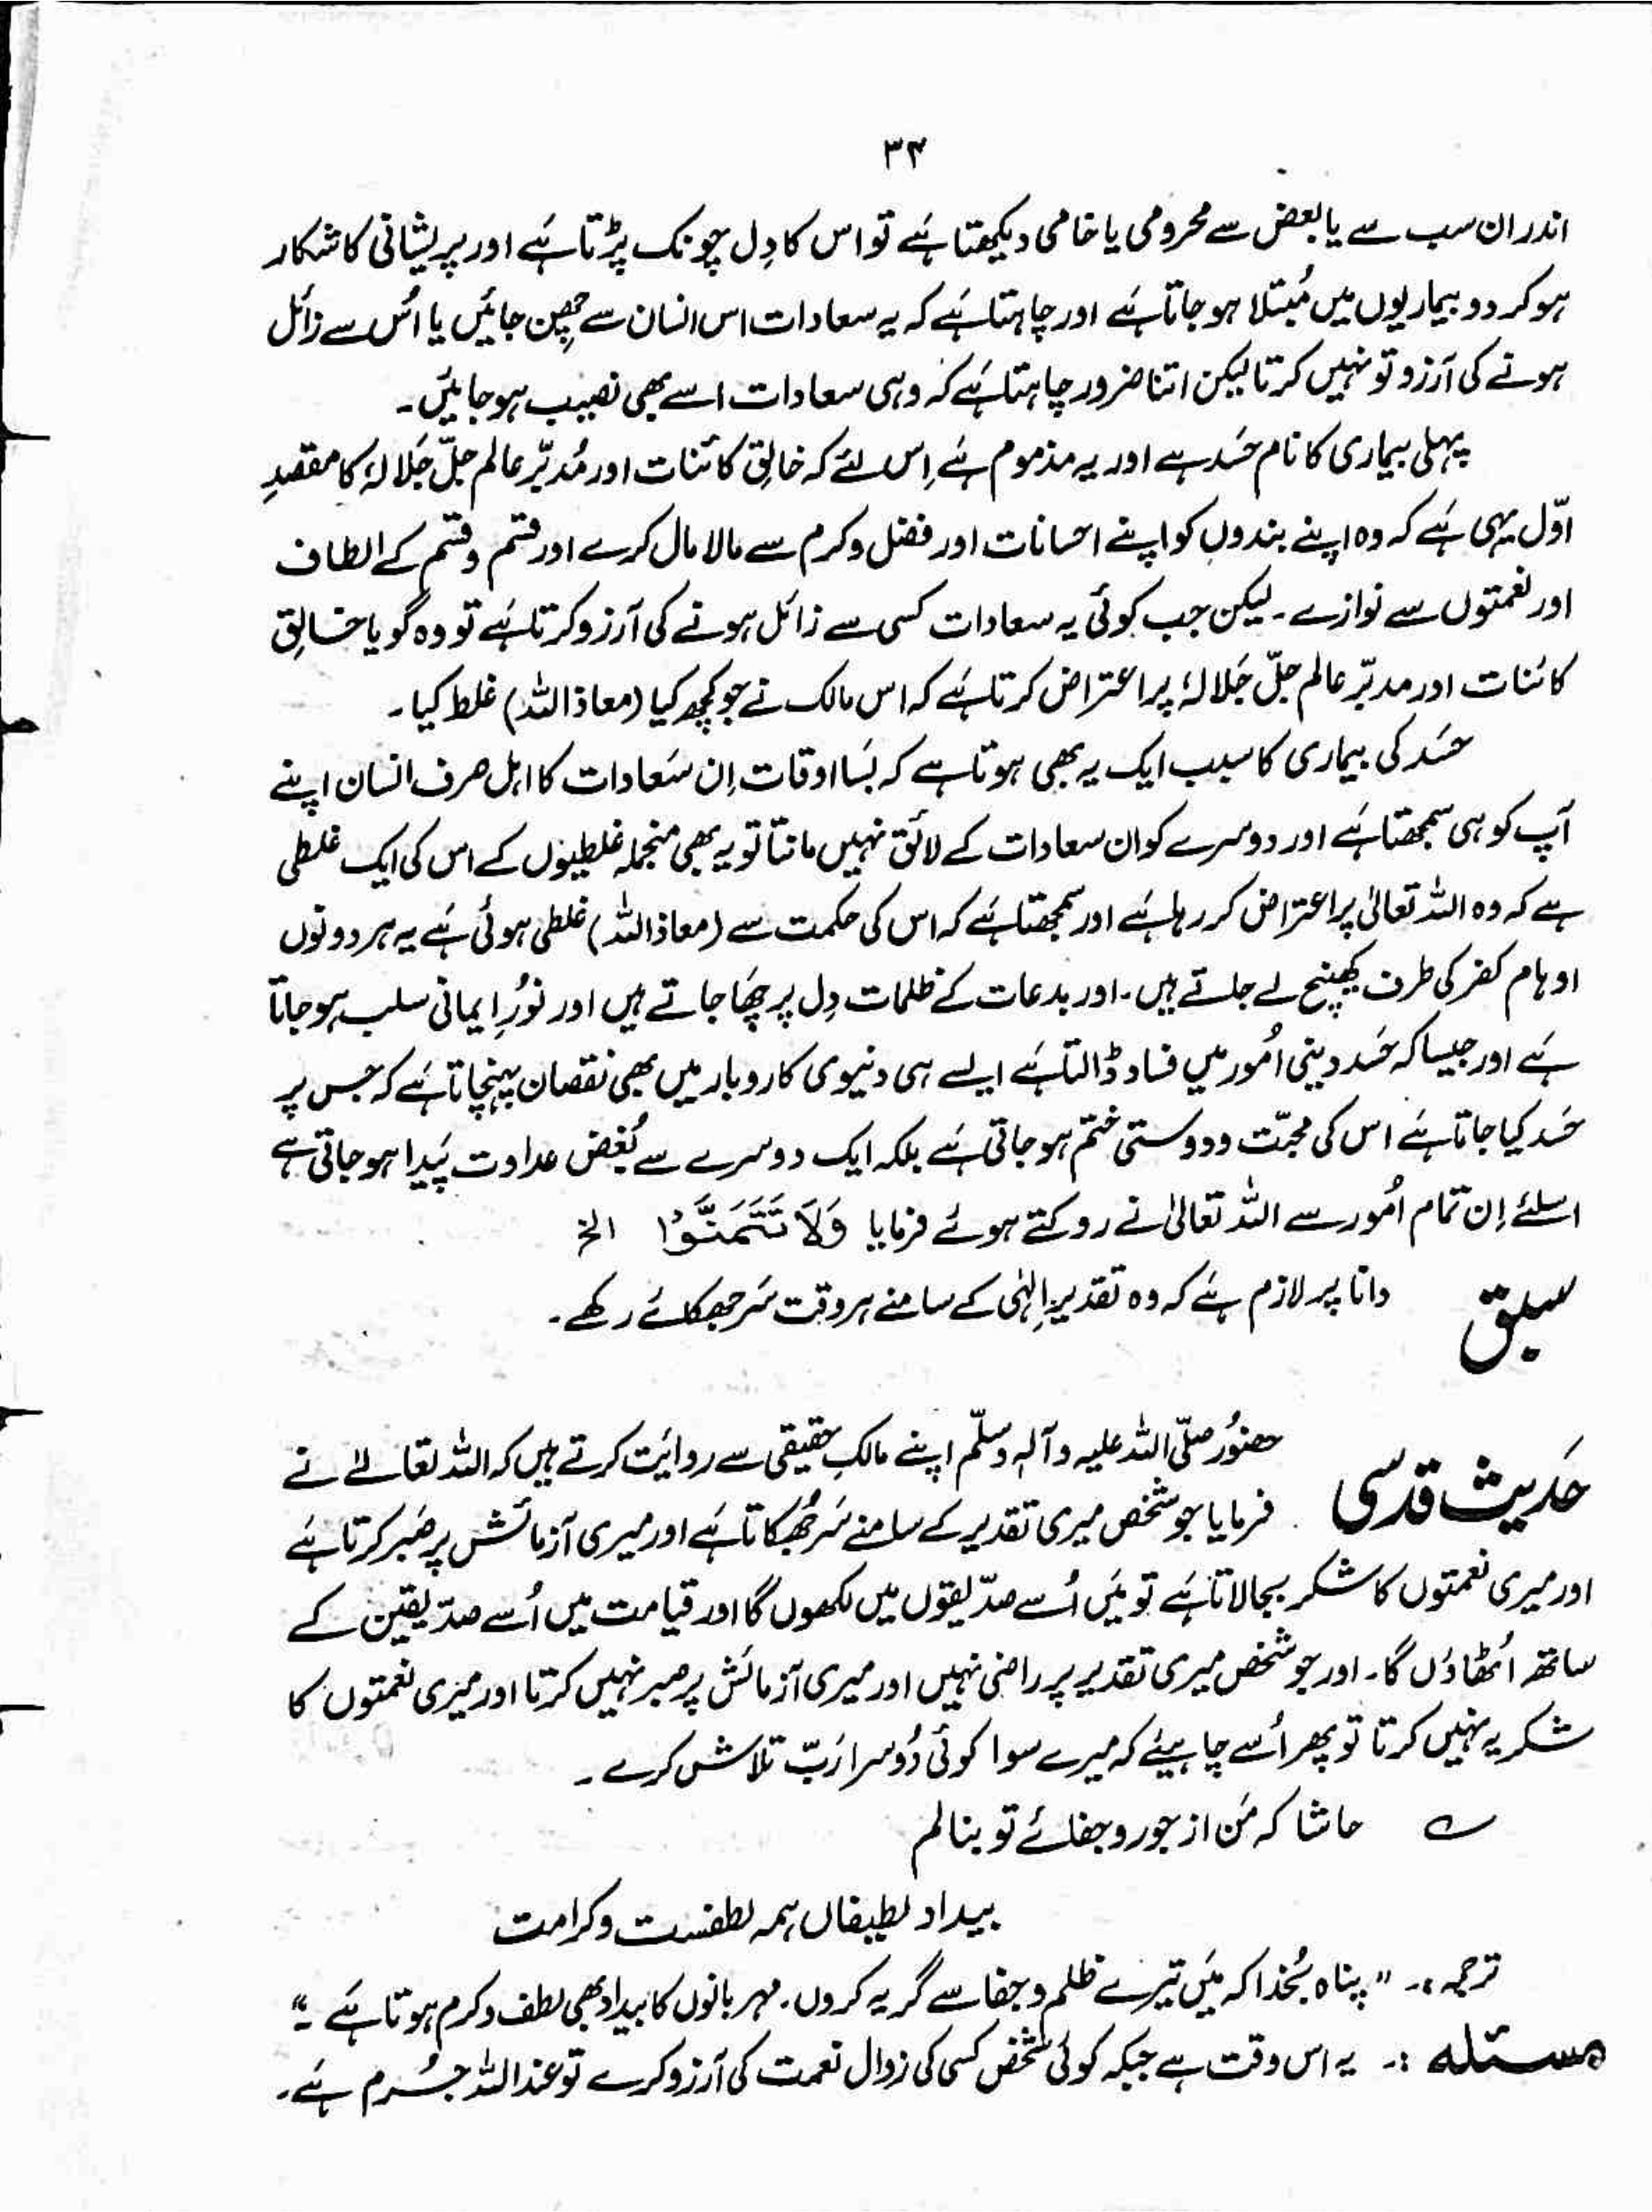 ۳۴
اندر ان سب سے یا بعض سے محرومی یا خامی دیکھتا ہَے تو اس کا دِل چونک پڑتا ہَے اور پریشانی کا شکار
ہو کر دو بیماریوں میں مُبتلا ہو جاتا ہَے اور چاہتا ہَے کہ یہ سعادات اس انسان سے چھِن جائیں یا اُس سے زائل
ہونے کی آرزو تو نہیں کرتا لیکن اتنا ضرور چاہتا ہَے کہ وہی سعادات اسے بھی نصیب ہو جائیں۔
پہلی بیماری کا نام حَسد ہے اور یہ مذموم ہَے اِس لئے کہ خالِق کائنات اور مُدبّر عالم جلّ جَلالہٗ کا مقصدِ
اوّل یہی ہَے کہ وہ اپنے بندوں کو اپنے احسانات اور فضل و کرم سے مالا مال کرے اور قسم و قسم کے الطاف
اور نعمتوں سے نوازے۔ لیکن جب کوئی یہ سعادات کسی سے زائل ہونے کی آرزو کرتا ہَے تو وہ گویا خالِق
کائنات اور مدبّر عالم جلّ جَلالہٗ پر اعتراض کرتا ہَے کہ اس مالک نے جو کچھ کیا (معاذ اللہ) غلط کیا۔
حسَد کی بیماری کا سبب ایک یہ بھی ہوتا ہے کہ بَسا اوقات اِن سَعادات کا اہل صرف انسان اپنے
آپ کو ہی سمجھتا ہَے اور دوسرے کو ان سعادات کے لائق نہیں مانتا تو یہ بھی منجملہ غلطیوں کے اس کی ایک غلطی
ہے کہ وہ اللہ تعالیٰ پر اعتراض کر رہا ہَے اور سمجھتا ہَے کہ اس کی حکمت سے (معاذ اللہ) غلطی ہوئی ہَے یہ ہر دونوں
اوہام کفر کی طرف کھینچ لے جاتے ہیں۔ اور بدعات کے ظلمات دِل پر چھَا جاتے ہیں اور نوُرِ ایمانی سلب ہو جاتا
ہَے اور جیسا کہ حَسد دینی اُمور میں فساد ڈالتا ہَے ایسے ہی دنیوی کاروبار میں بھی نقصان پہنچاتا ہَے کہ جس پر
حَسد کیا جاتا ہَے اس کی محبّت و دوستی ختم ہو جاتی ہَے بلکہ ایک دوسرے سے بُغض عداوت پَیدا ہو جاتی ہے
اسلئے اِن تمام اُمور سے اللہ تعالیٰ نے روکتے ہوئے فرمایا وَلَا تَتَمَنَّوْا الخ
سبق دانا پر لازم ہَے کہ وہ تقدیرِ الٰہی کے سامنے ہر وقت سَر جھکائے رکھے۔
حَدیث قدسی حضوُر صلّی اللہ علیہ وآلہٖ وسلّم اپنے مالکِ حقیقی سے روایَت کرتے ہیں کہ اللہ تعالےٰ نے
فرمایا جو شخص میری تقدیر کے سامنے سَر جُھکاتا ہَے اور میری آزمائش پر صَبر کرتا ہَے
اور میری نعمتوں کا شکر بجا لاتا ہَے تو مَیں اُسے صدّیقوں میں لکھوں گا اور قیامت میں اُسے صدّیقین کے
ساتھ اُٹھاؤں گا۔ اور جو شخص میری تقدیر پر راضی نہیں اور میری آزمائش پر صبر نہیں کرتا اور میری نعمتوں کا
شکریہ نہیں کرتا تو پھر اُسے چاہیئے کہ میرے سوا کوئی دُوسرا رَبّ تلاش کرے۔
؎ حاشا کہ مَن از جور و جفائے تو بنالم
بیداد لطیفاں ہمہ لطفست و کرامت
ترجمہ :۔ "پناہ بُخدا کہ مَیں تیرے ظلم و جفا سے گریہ کروں۔ مہربانوں کا بیداد بھی لطف و کرم ہوتا ہَے۔"
مسئلہ :۔ یہ اس وقت ہے جبکہ کوئی شخص کسی کی زوال نعمت کی آرزو کرے تو عند اللہ جُرم ہَے۔